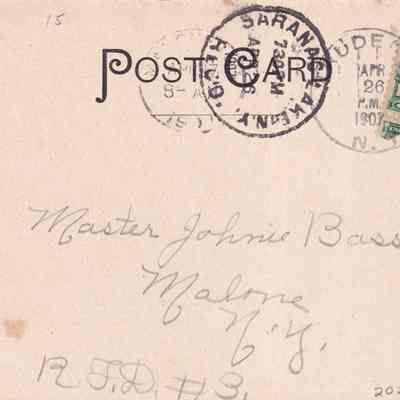 15
POST CARD
SARANAC LAKE, N.Y.
7 30 PM
APR 26
REC'D.
8-A
UDE
APR
26
P.M.
1907
N.
Master Johnie Bass
Malone
N.Y.
R.F.D. #3.
202